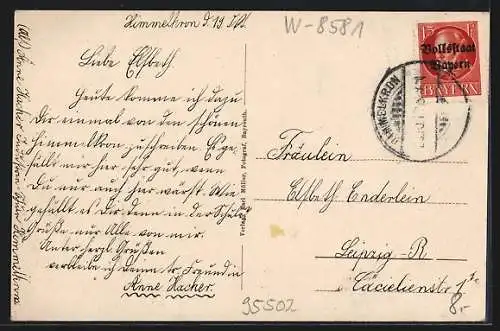 W-8581
Himmelkron d. 19.
Liebe Elsbeth
Heute komme ich dazu
Dir einmal von dem schönen
Himmelkron zuschreiben. Es ge-
fällts mir hier sehr gut, wenn
Du nur auch hier wärst. Wie
gefällt es Dir denn in der Schule
Grüße nur Alle von mir.
Unter herzl. Grüßen
verbleibe ich Deine tr. Freundin
Anne Hacher.
Anne Hacher
Himmelkron
Verlag Karl Müller, Fotograf, Bayreuth.
15 Pf
Volksstaat
Bayern
BAYERN
HIMMELKRON
Fräulein
Elsbeth Enderlein
Leipzig-R
Cäcilienstr 1
8.-
95502